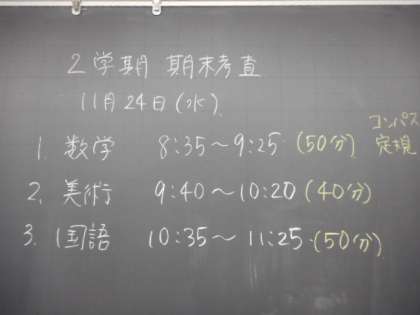 2学期 期末考査
11月24日(水)
1. 数学 8:35～9:25 (50分) コンパス 定規
2. 美術 9:40～10:20 (40分)
3. 国語 10:35～11:25 (50分)